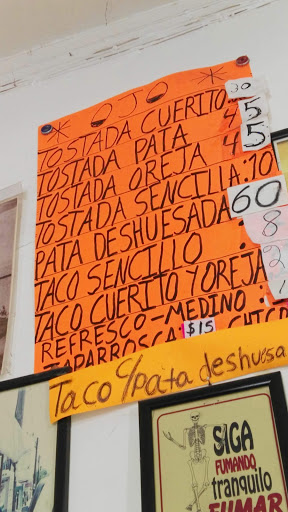 * OJO *
TOSTADA CUERITO: 30
TOSTADA PATA 45
TOSTADA OREJA 45
TOSTADA SENCILLA: 10
PATA DESHUESADA 60
TACO SENCILLO : 8
TACO CUERITO Y OREJA 2
REFRESCO - MEDINO :
$15
Taco c/pata deshuesa
SIGA
FUMANDO
tranquilo
FUMAR